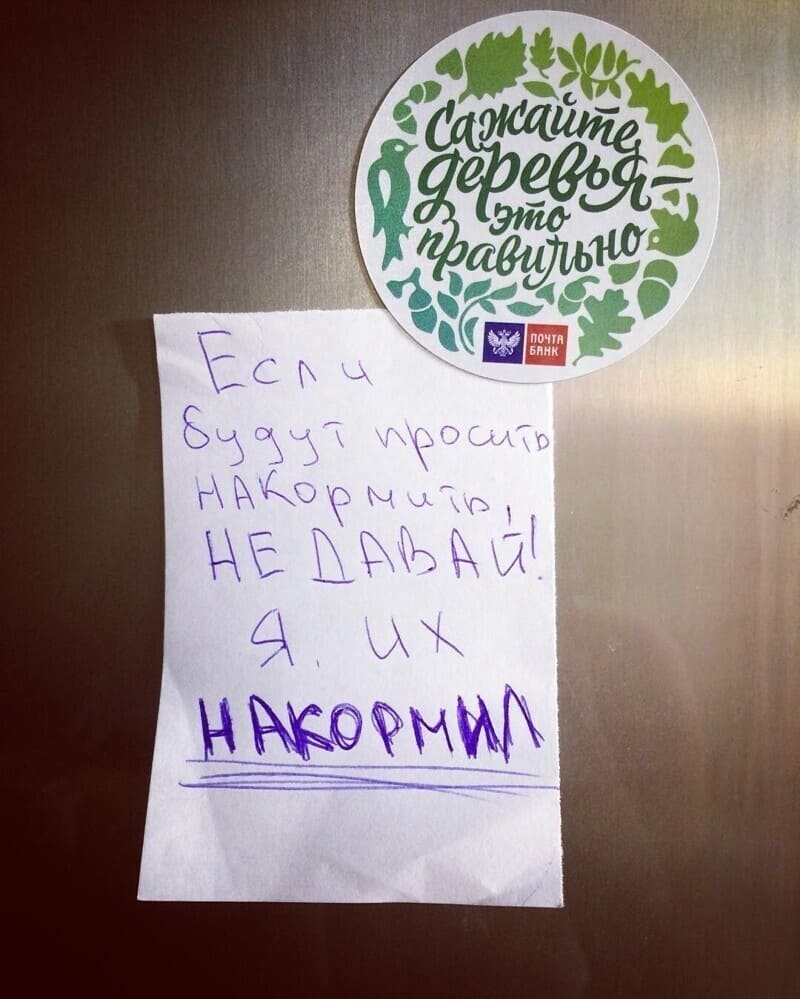 Сажайте
деревья-
это
правильно
ПОЧТА
БАНК
Если
будут просить
НАКормить,
НЕ ДАВАЙ!
Я. ИХ
НАКОРМИЛ